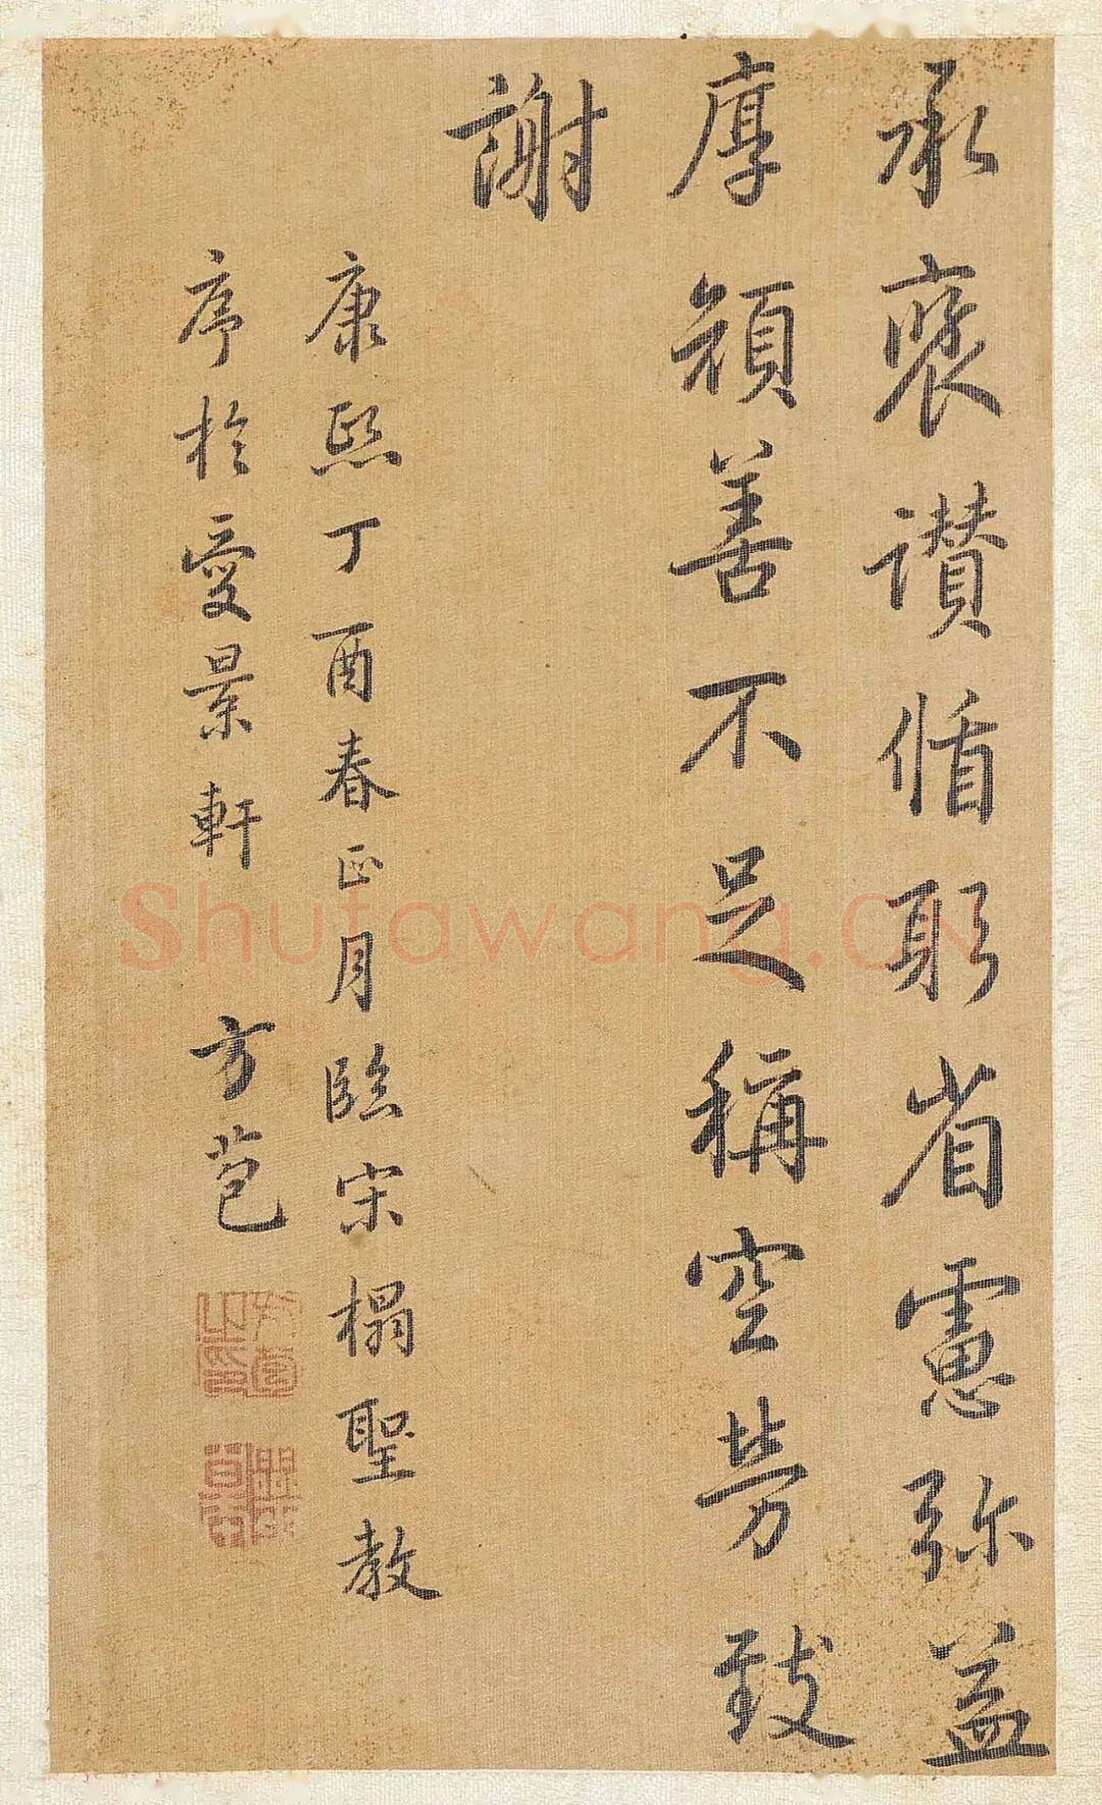 承襃讃循躬省慮弥益
厚頑善不足稱空勞致
謝
康熙丁酉春正月臨宋榻聖教
序於愛景軒 方苞
Shufawang.CN